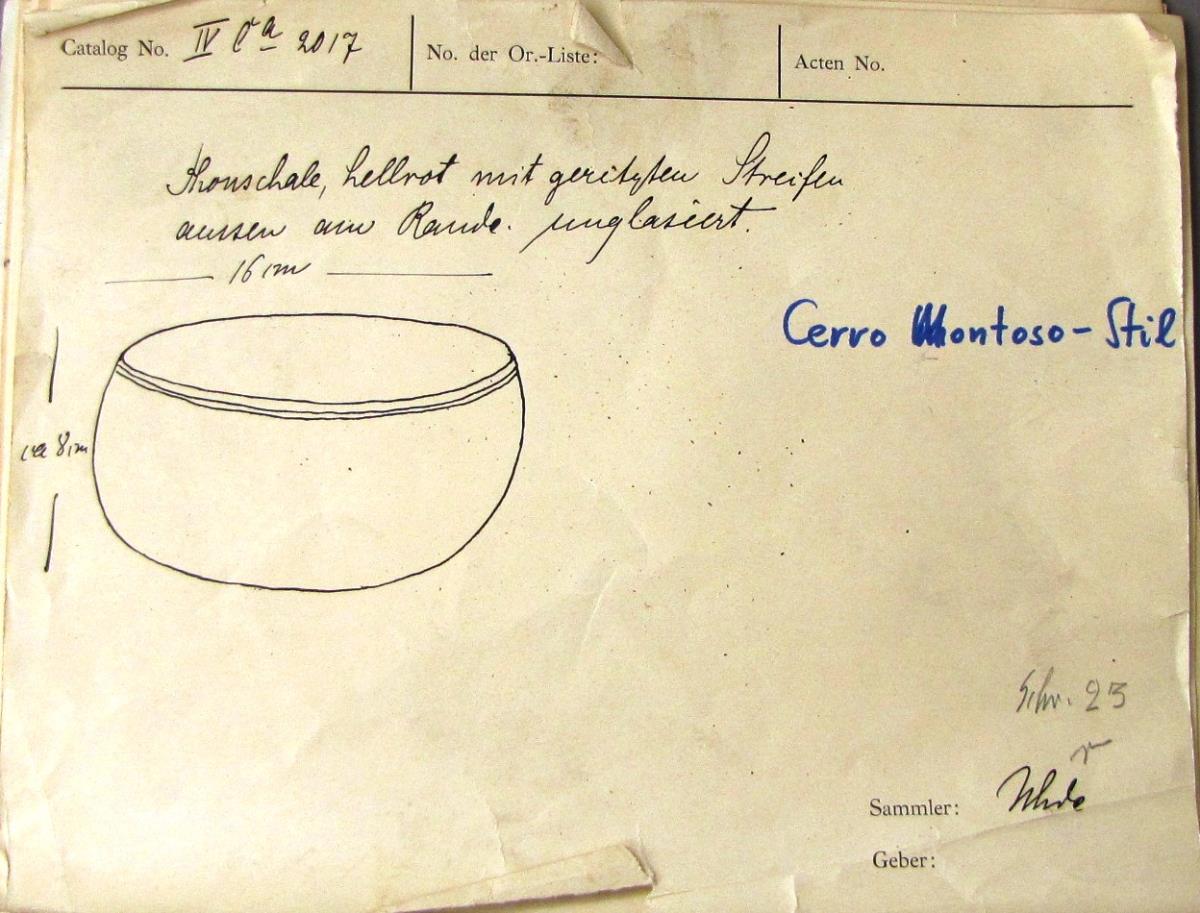 Catalog No. IV Ca 2017 No. der Or.-Liste: Acten No.
Thonschale, hellrot mit geritzten Streifen
aussen am Rande. unglasiert.
16 cm
Cerro Montoso-Stil
ca 8 cm
Schr. 23
Sammler: Uhde
Geber: